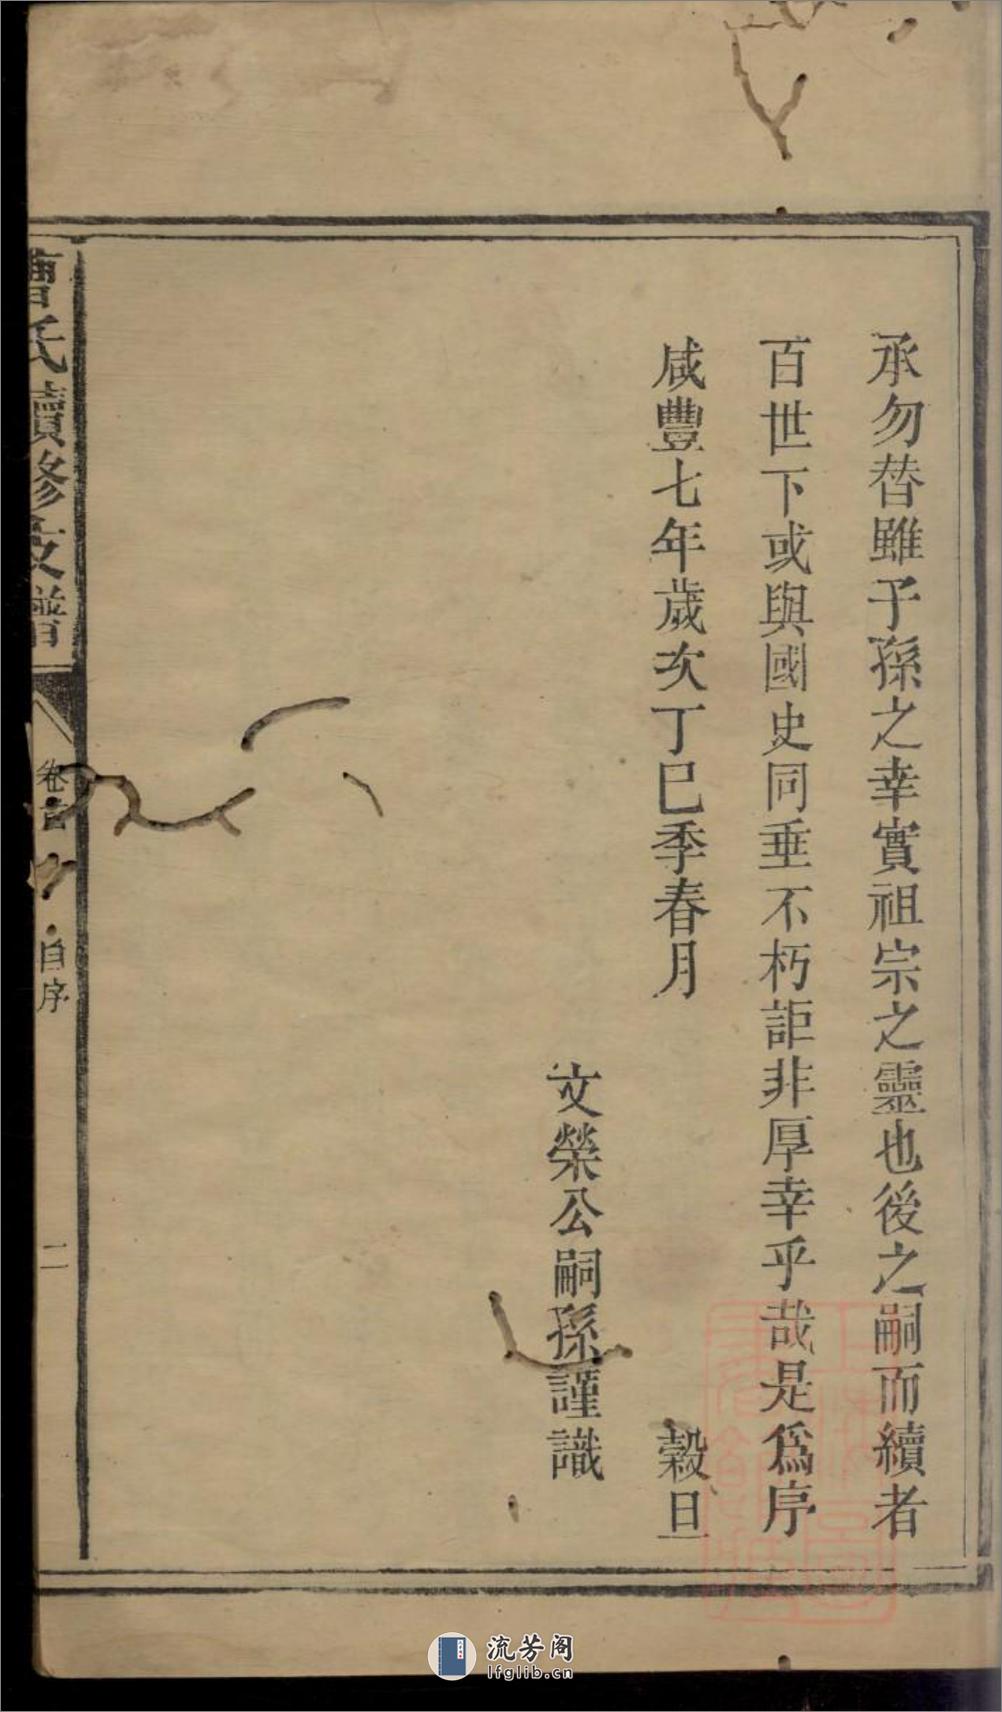 承勿替雖子孫之幸實祖宗之靈也後之嗣而續者
百世下或與國史同垂不朽詎非厚幸乎哉是爲序
咸豐七年歲次丁巳季春月 榖旦
文榮公嗣孫謹識
曹氏續修支譜
卷首
自序
二
流芳阁
lfglib.cn